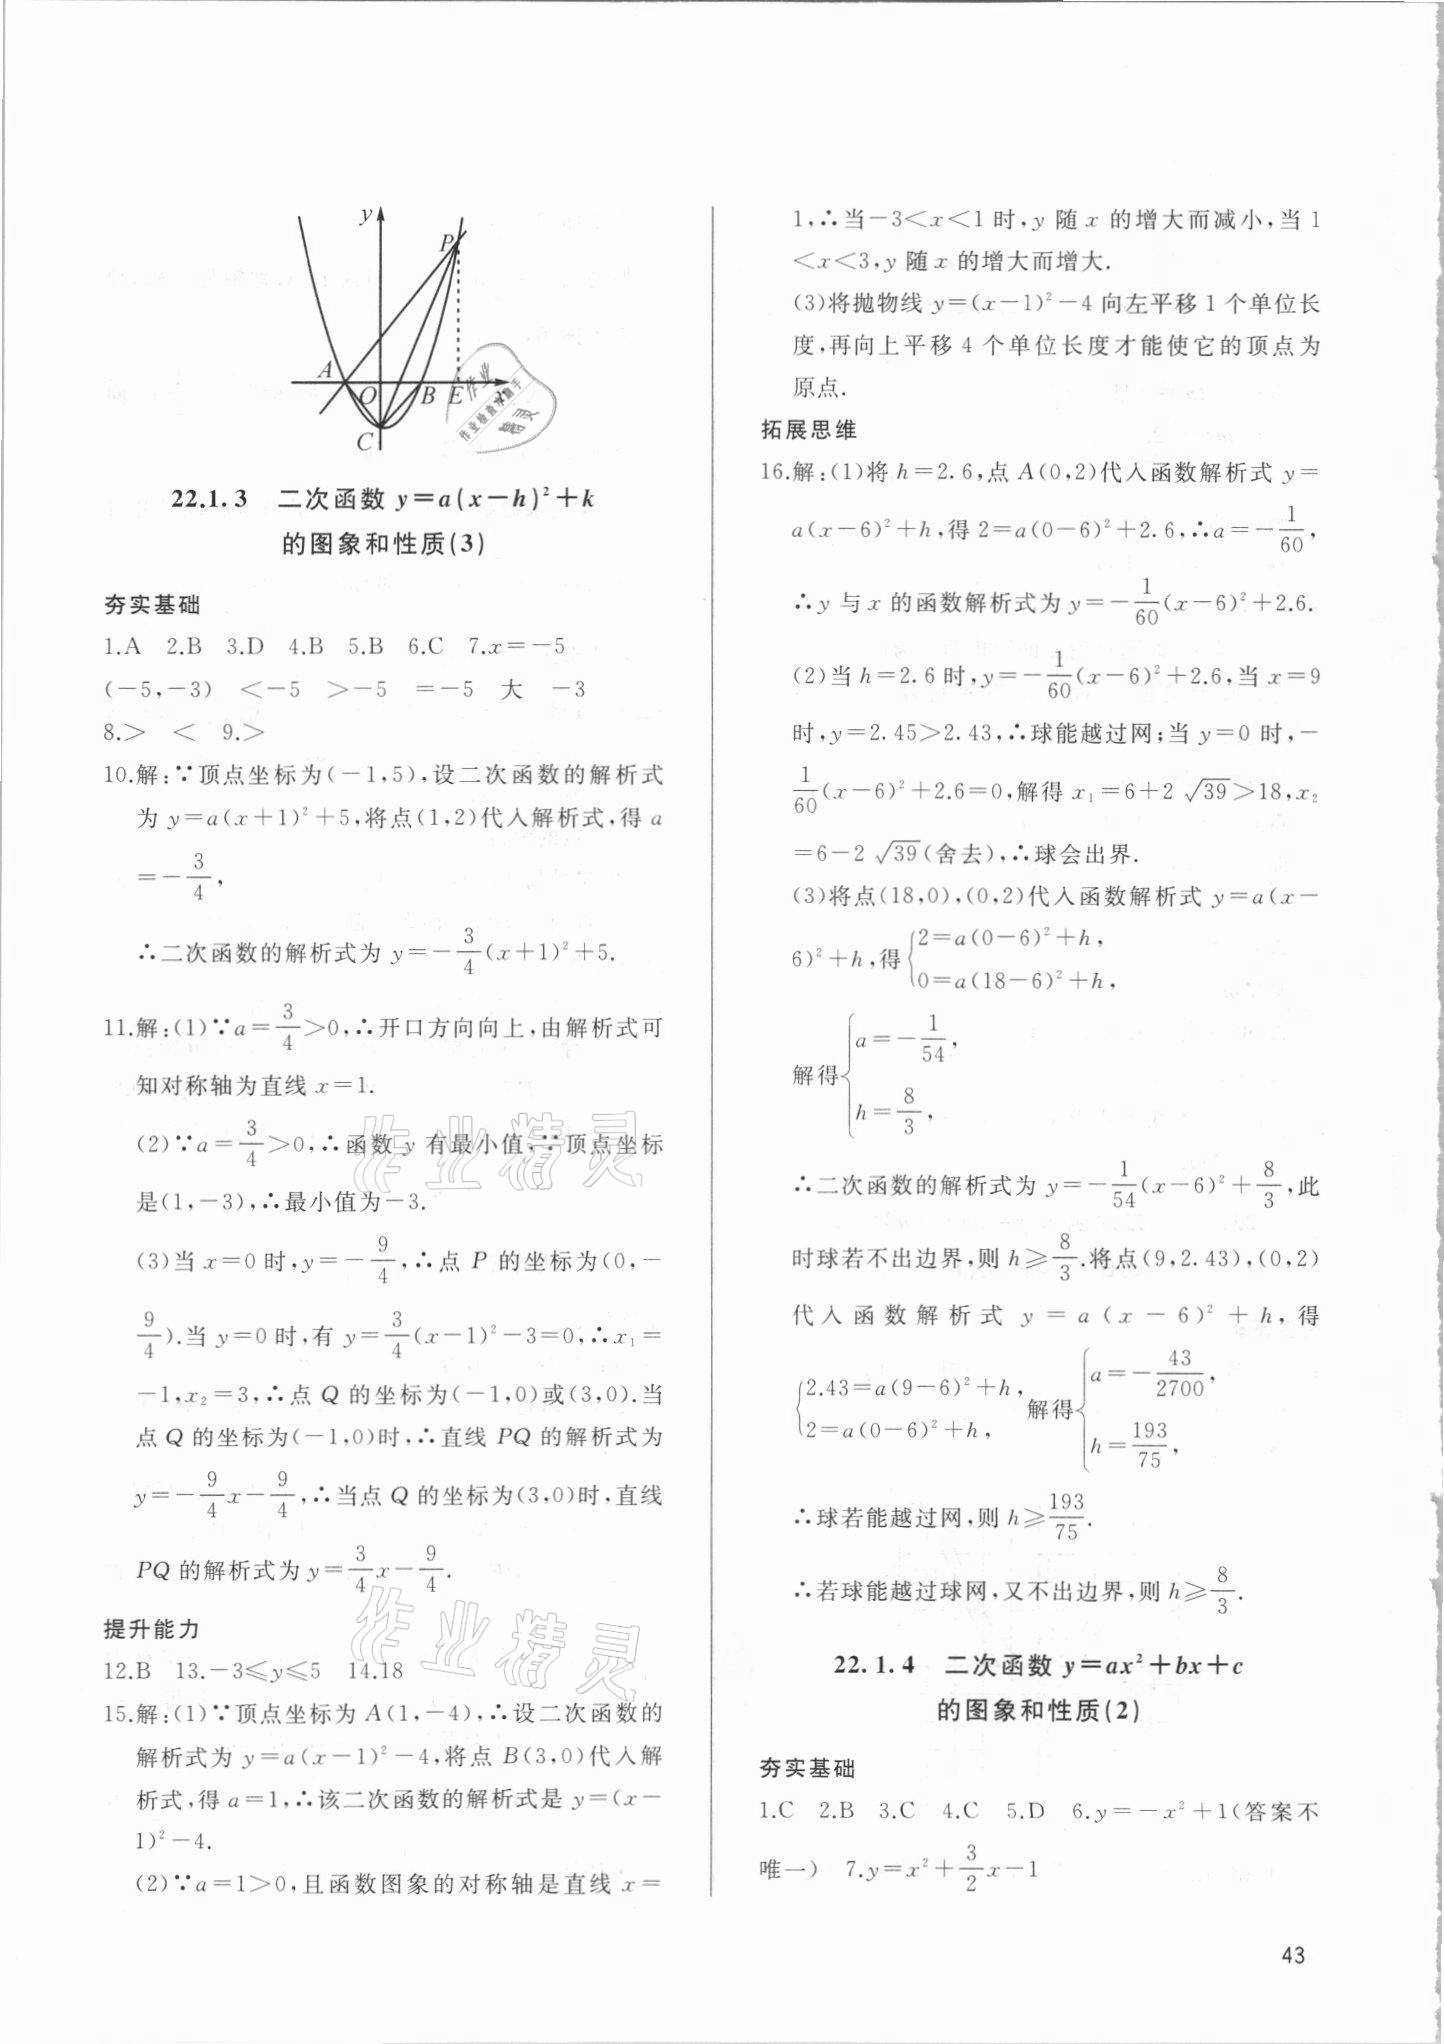 y
P
A
O
B
E
x
C
作业
作业检查小助手
精灵
22.1.3 二次函数 y=a(x-h)²+k
的图象和性质(3)
夯实基础
1.A 2.B 3.D 4.B 5.B 6.C 7.x=-5
(-5,-3) <-5 >-5 =-5 大 -3
8.> < 9.>
10.解:∵顶点坐标为(-1,5),设二次函数的解析式
为 y=a(x+1)²+5,将点(1,2)代入解析式,得 a
=-3/4,
∴二次函数的解析式为 y=-3/4(x+1)²+5.
11.解:(1)∵a=3/4>0,∴开口方向向上,由解析式可
知对称轴为直线 x=1.
(2)∵a=3/4>0,∴函数 y 有最小值,∵顶点坐标
是(1,-3),∴最小值为-3.
(3)当 x=0 时,y=-9/4,∴点 P 的坐标为(0,-
9/4).当 y=0 时,有 y=3/4(x-1)²-3=0,∴x₁=
-1,x₂=3,∴点 Q 的坐标为(-1,0)或(3,0).当
点 Q 的坐标为(-1,0)时,∴直线 PQ 的解析式为
y=-9/4x-9/4,∴当点 Q 的坐标为(3,0)时,直线
PQ 的解析式为 y=3/4x-9/4.
提升能力
12.B 13.-3≤y≤5 14.18
15.解:(1)∵顶点坐标为 A(1,-4),∴设二次函数的
解析式为 y=a(x-1)²-4,将点 B(3,0)代入解
析式,得 a=1,∴该二次函数的解析式是 y=(x-
1)²-4.
(2)∵a=1>0,且函数图象的对称轴是直线 x=
作业精灵
作业精灵
1,∴当-3<x<1 时,y 随 x 的增大而减小,当 1
<x<3,y 随 x 的增大而增大.
(3)将抛物线 y=(x-1)²-4 向左平移 1 个单位长
度,再向上平移 4 个单位长度才能使它的顶点为
原点.
拓展思维
16.解:(1)将 h=2.6,点 A(0,2)代入函数解析式 y=
a(x-6)²+h,得 2=a(0-6)²+2.6,∴a=-1/60,
∴y 与 x 的函数解析式为 y=-1/60(x-6)²+2.6.
(2)当 h=2.6 时,y=-1/60(x-6)²+2.6,当 x=9
时,y=2.45>2.43,∴球能越过网;当 y=0 时,-
1/60(x-6)²+2.6=0,解得 x₁=6+2√39>18,x₂
=6-2√39(舍去),∴球会出界.
(3)将点(18,0),(0,2)代入函数解析式 y=a(x-
6)²+h,得{2=a(0-6)²+h,
0=a(18-6)²+h,
解得{a=-1/54,
h=8/3,
∴二次函数的解析式为 y=-1/54(x-6)²+8/3,此
时球若不出边界,则 h≥8/3.将点(9,2.43),(0,2)
代入函数解析式 y=a(x-6)²+h,得
{2.43=a(9-6)²+h,
2=a(0-6)²+h,
解得{a=-43/2700,
h=193/75,
∴球若能越过网,则 h≥193/75.
∴若球能越过球网,又不出边界,则 h≥8/3.
22.1.4 二次函数 y=ax²+bx+c
的图象和性质(2)
夯实基础
1.C 2.B 3.C 4.C 5.D 6.y=-x²+1(答案不
唯一) 7.y=x²+3/2x-1
43